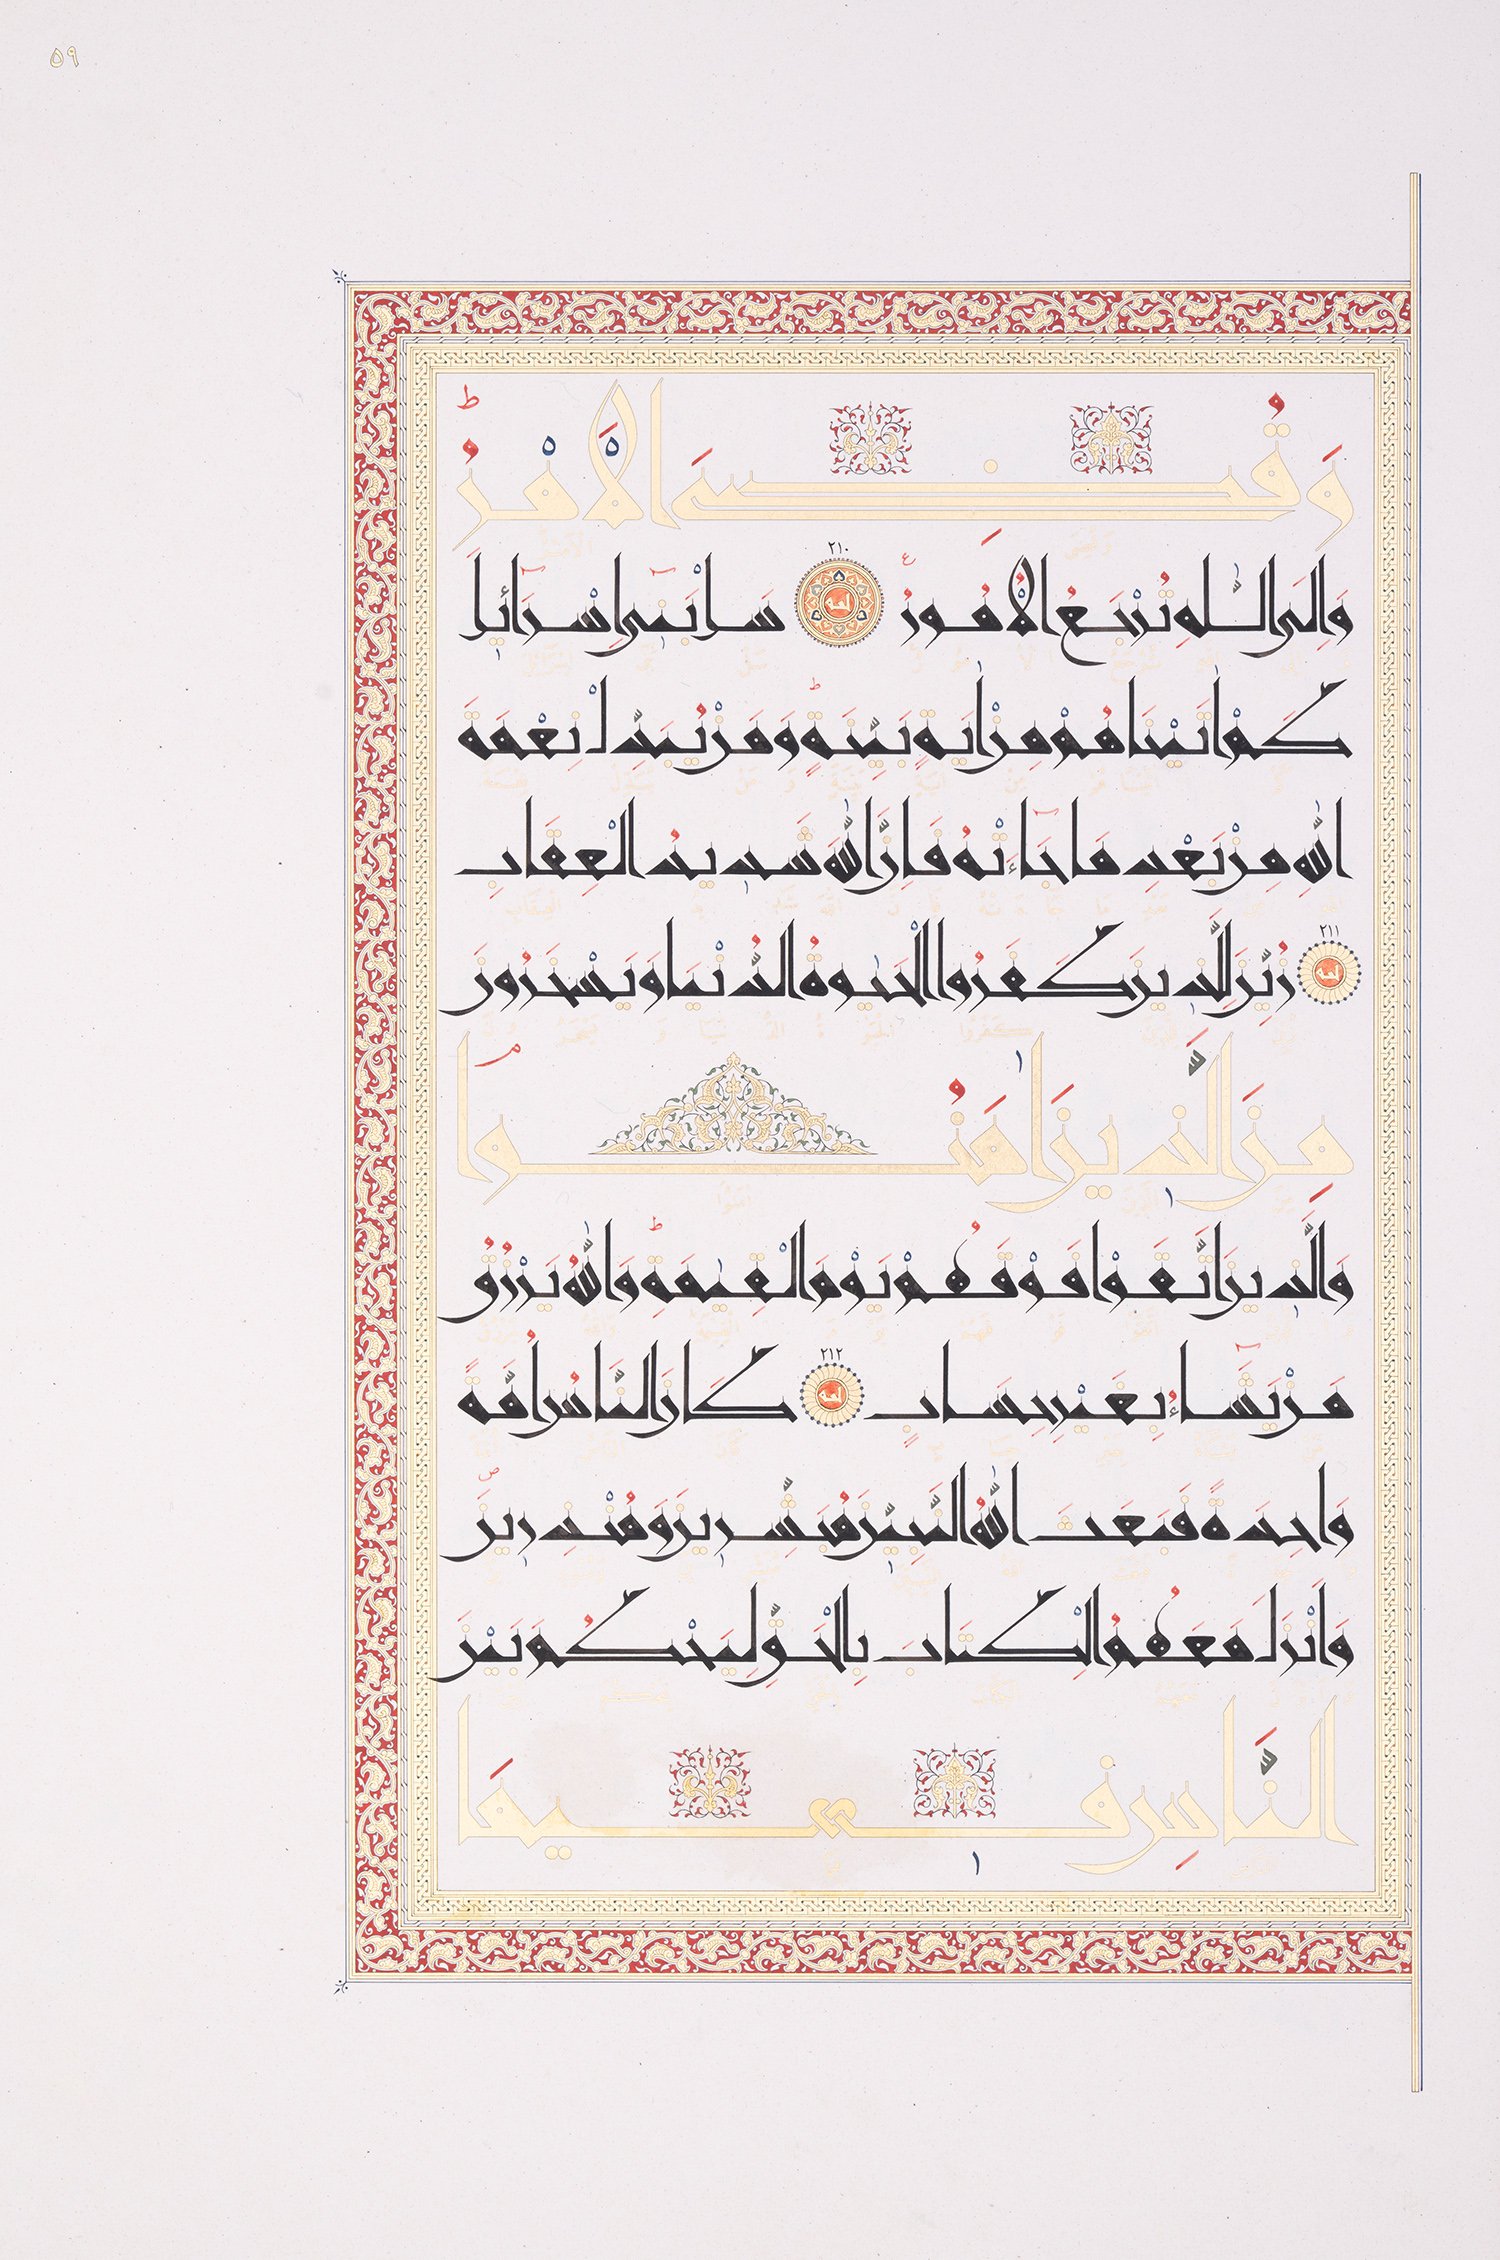 ٥٩
وَقُضِىَ الْاَمْرُ ؕ
وَاِلَى اللّٰهِ تُرْجَعُ الْاُمُورُ ٢١٠ سَلْ بَنِي اِسْرَائِيلَ
كَمْ اٰتَيْنَاهُمْ مِنْ اٰيَةٍ بَيِّنَةٍ ؕ وَمَنْ يُبَدِّلْ نِعْمَةَ
اللّٰهِ مِنْ بَعْدِ مَا جَاءَتْهُ فَاِنَّ اللّٰهَ شَدِيدُ الْعِقَابِ
٢١١ زُيِّنَ لِلَّذِينَ كَفَرُوا الْحَيٰوةُ الدُّنْيَا وَيَسْخَرُونَ
مِنَ الَّذِينَ اٰمَنُوا ۘ
وَالَّذِينَ اتَّقَوْا فَوْقَهُمْ يَوْمَ الْقِيٰمَةِ ؕ وَاللّٰهُ يَرْزُقُ
مَنْ يَشَاءُ بِغَيْرِ حِسَابٍ ٢١٢ كَانَ النَّاسُ اُمَّةً
وَاحِدَةً فَبَعَثَ اللّٰهُ النَّبِيِّينَ مُبَشِّرِينَ وَمُنْذِرِينَ
وَاَنْزَلَ مَعَهُمُ الْكِتَابَ بِالْحَقِّ لِيَحْكُمَ بَيْنَ
النَّاسِ فِيمَا